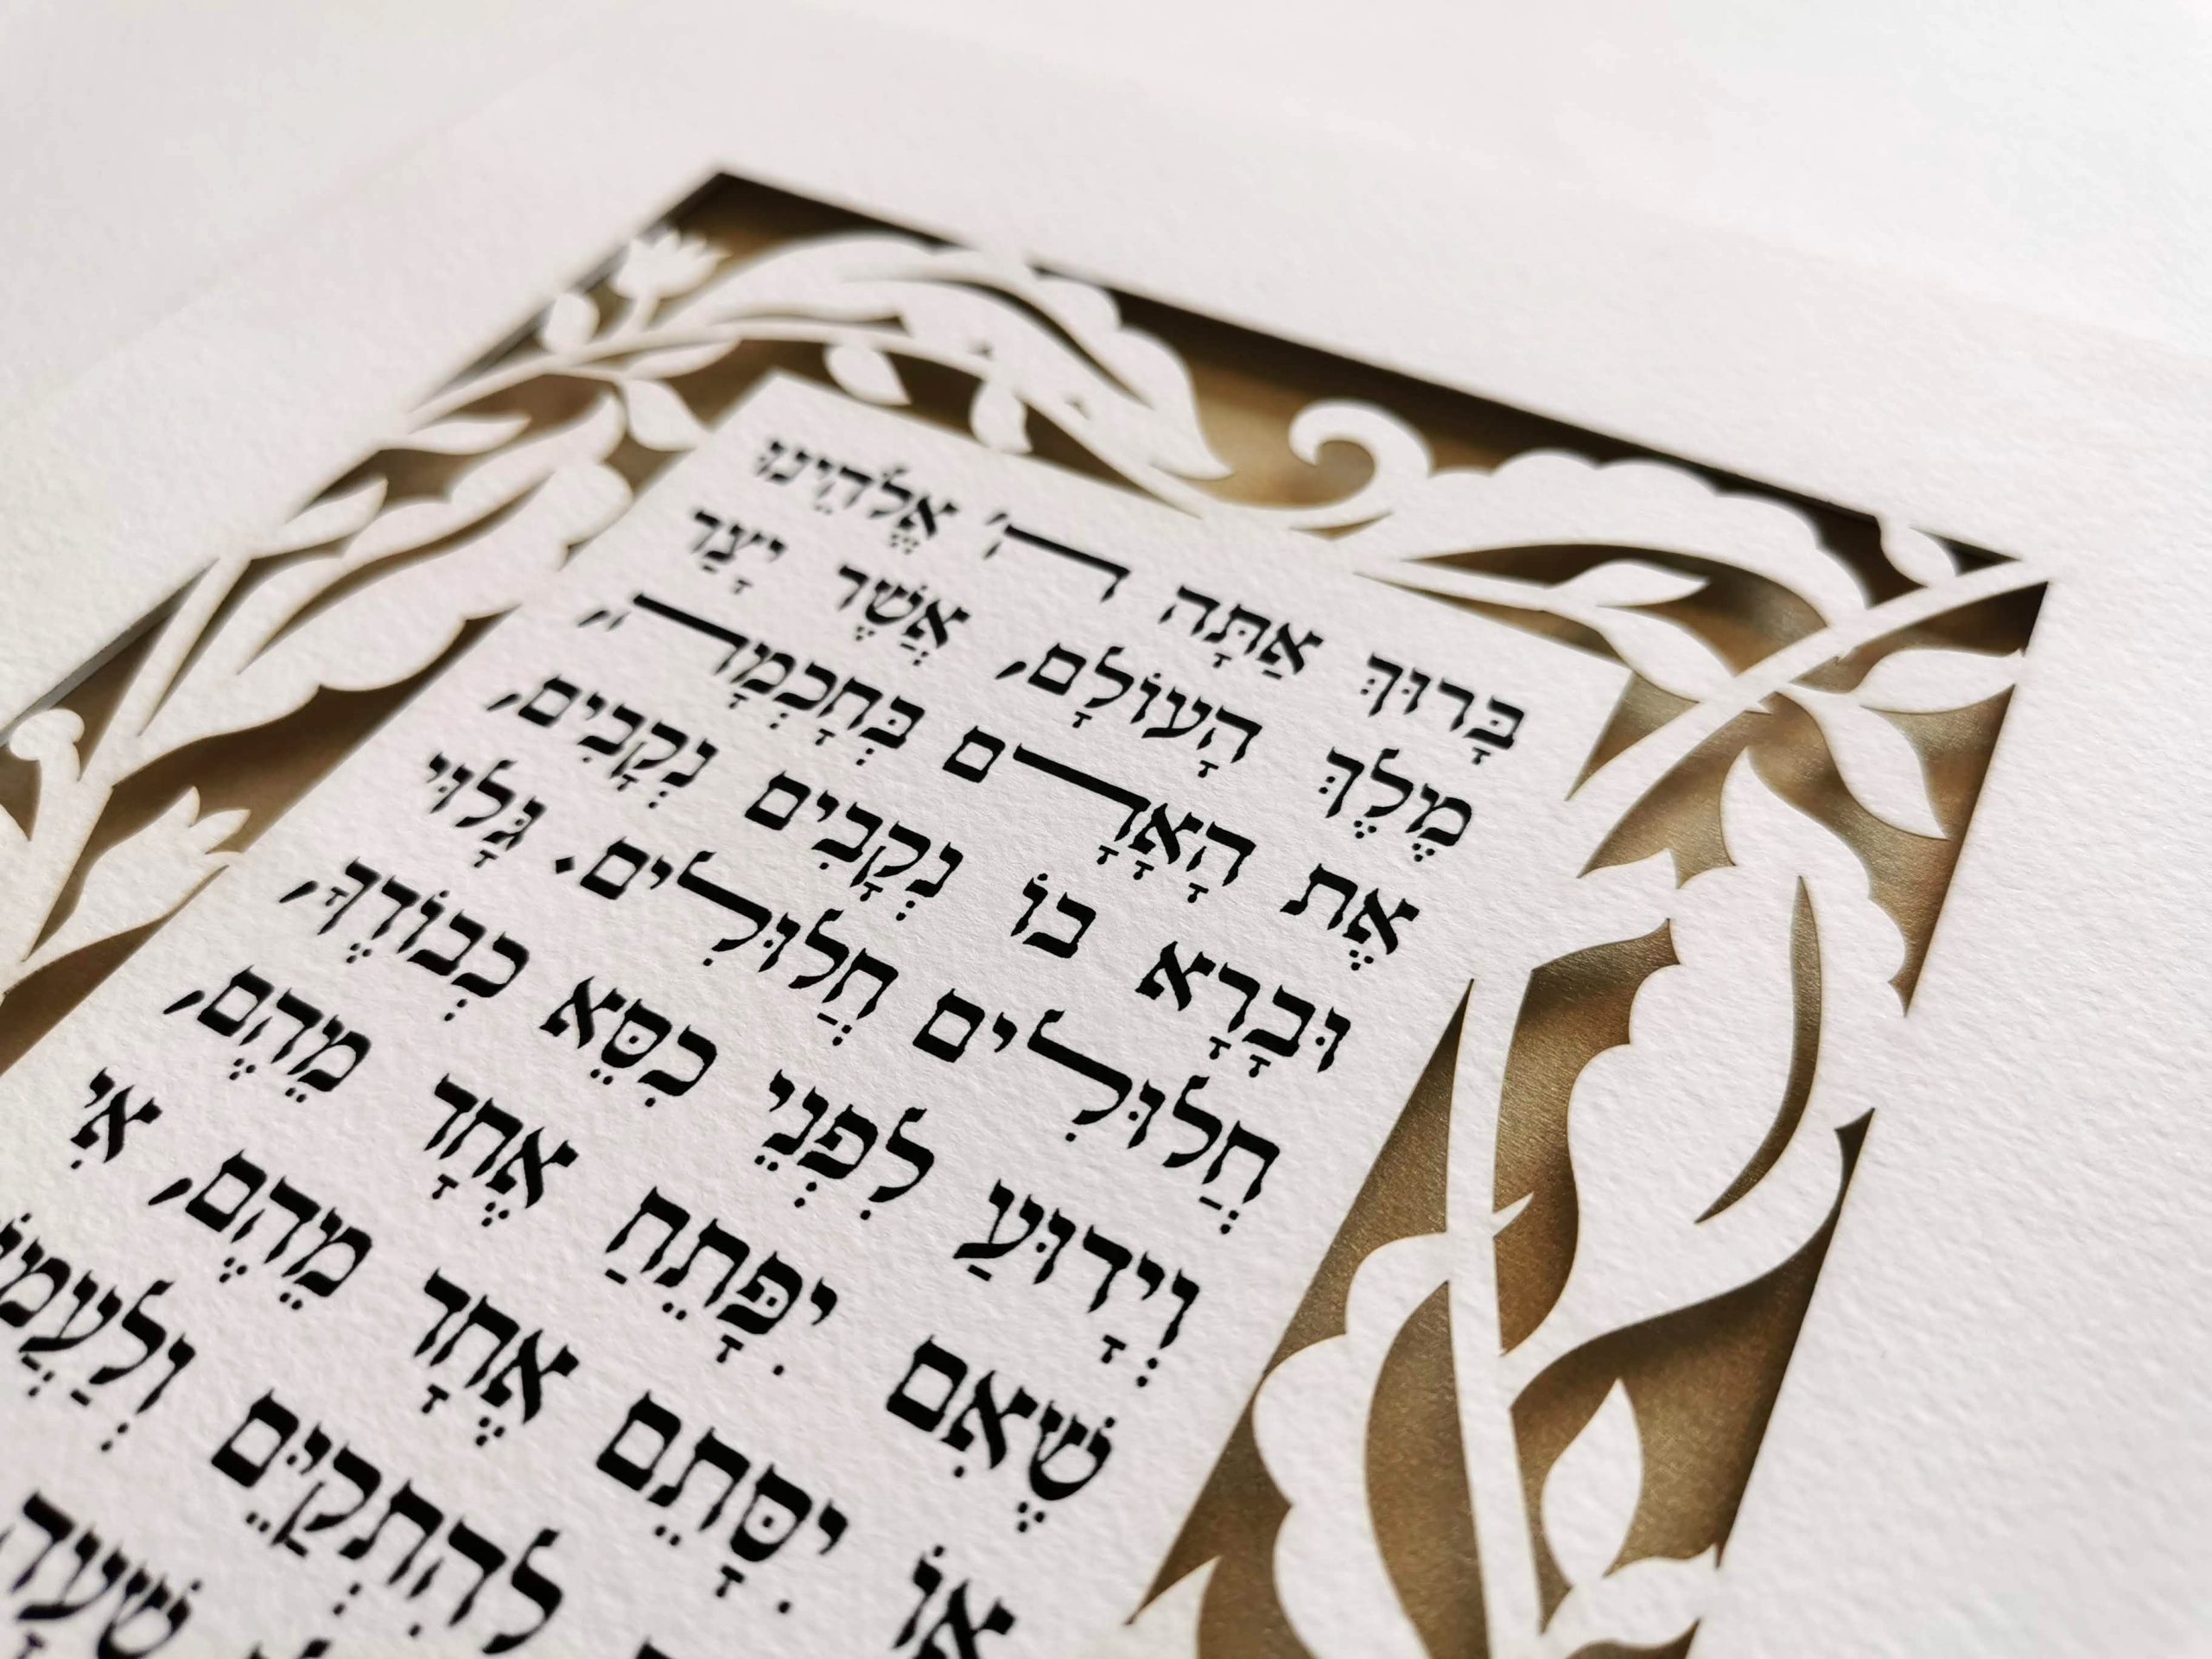 בָּרוּךְ אַתָּה ה' אֱלֹהֵינוּ
מֶלֶךְ הָעוֹלָם, אֲשֶׁר יָצַר
אֶת הָאָדָם בְּחָכְמָה,
וּבָרָא בוֹ נְקָבִים נְקָבִים,
חֲלוּלִים חֲלוּלִים. גָּלוּי
וְיָדוּעַ לִפְנֵי כִסֵּא כְבוֹדְךָ,
שֶׁאִם יִפָּתֵחַ אֶחָד מֵהֶם,
אוֹ יִסָּתֵם אֶחָד מֵהֶם, אִי
לְהִתְקַיֵּם
שָׁעָה